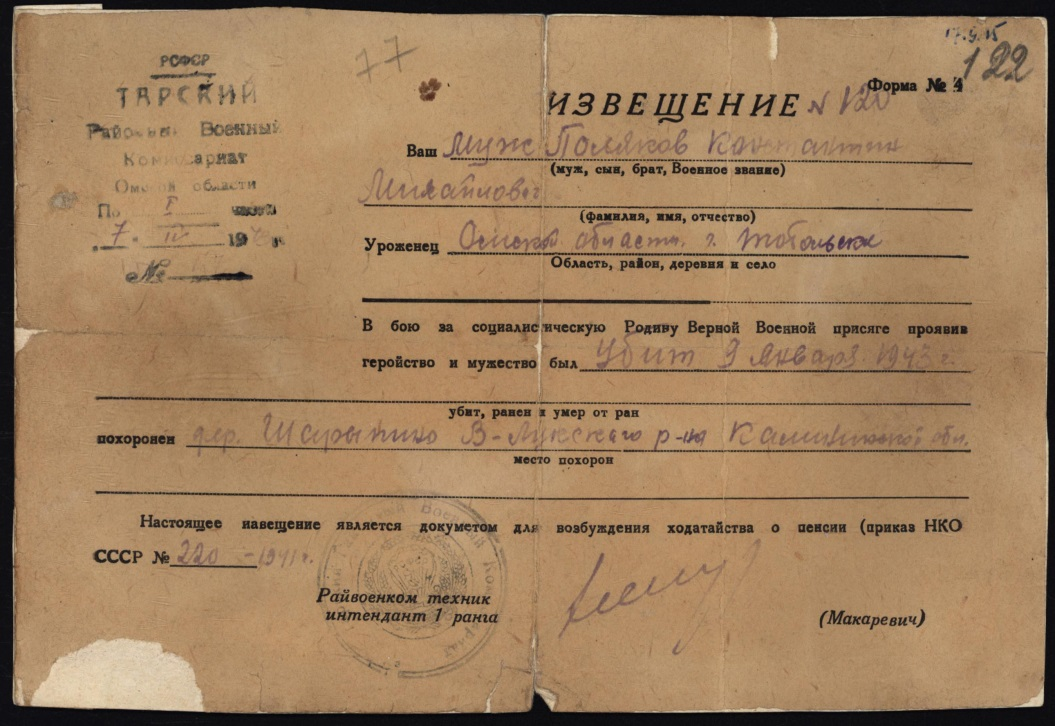 77
122
РСФСР
ТАРСКИЙ
Районный Военный
Комиссариат
Омской области
По I части
7. IV 1943 г.
№
Форма № 4
ИЗВЕЩЕНИЕ N 120
Ваш Муж Поляков Константин
(муж, сын, брат, Военное звание)
Михайлович
(фамилия, имя, отчество)
Уроженец Омской области г. Тобольска
Область, район, деревня и село
В бою за социалистическую Родину Верной Военной присяге проявив
геройство и мужество был Убит 9 января 1943 г.
убит, ранен и умер от ран
похоронен дер. Шарыпино В-Лукского р-на Калининской обл.
место похорон
Настоящее навещение является докуметом для возбуждения ходатайства о пенсии (приказ НКО
СССР № 220 - 1941 г.
Райвоенком техник
интендант 1 ранга
(Макаревич)